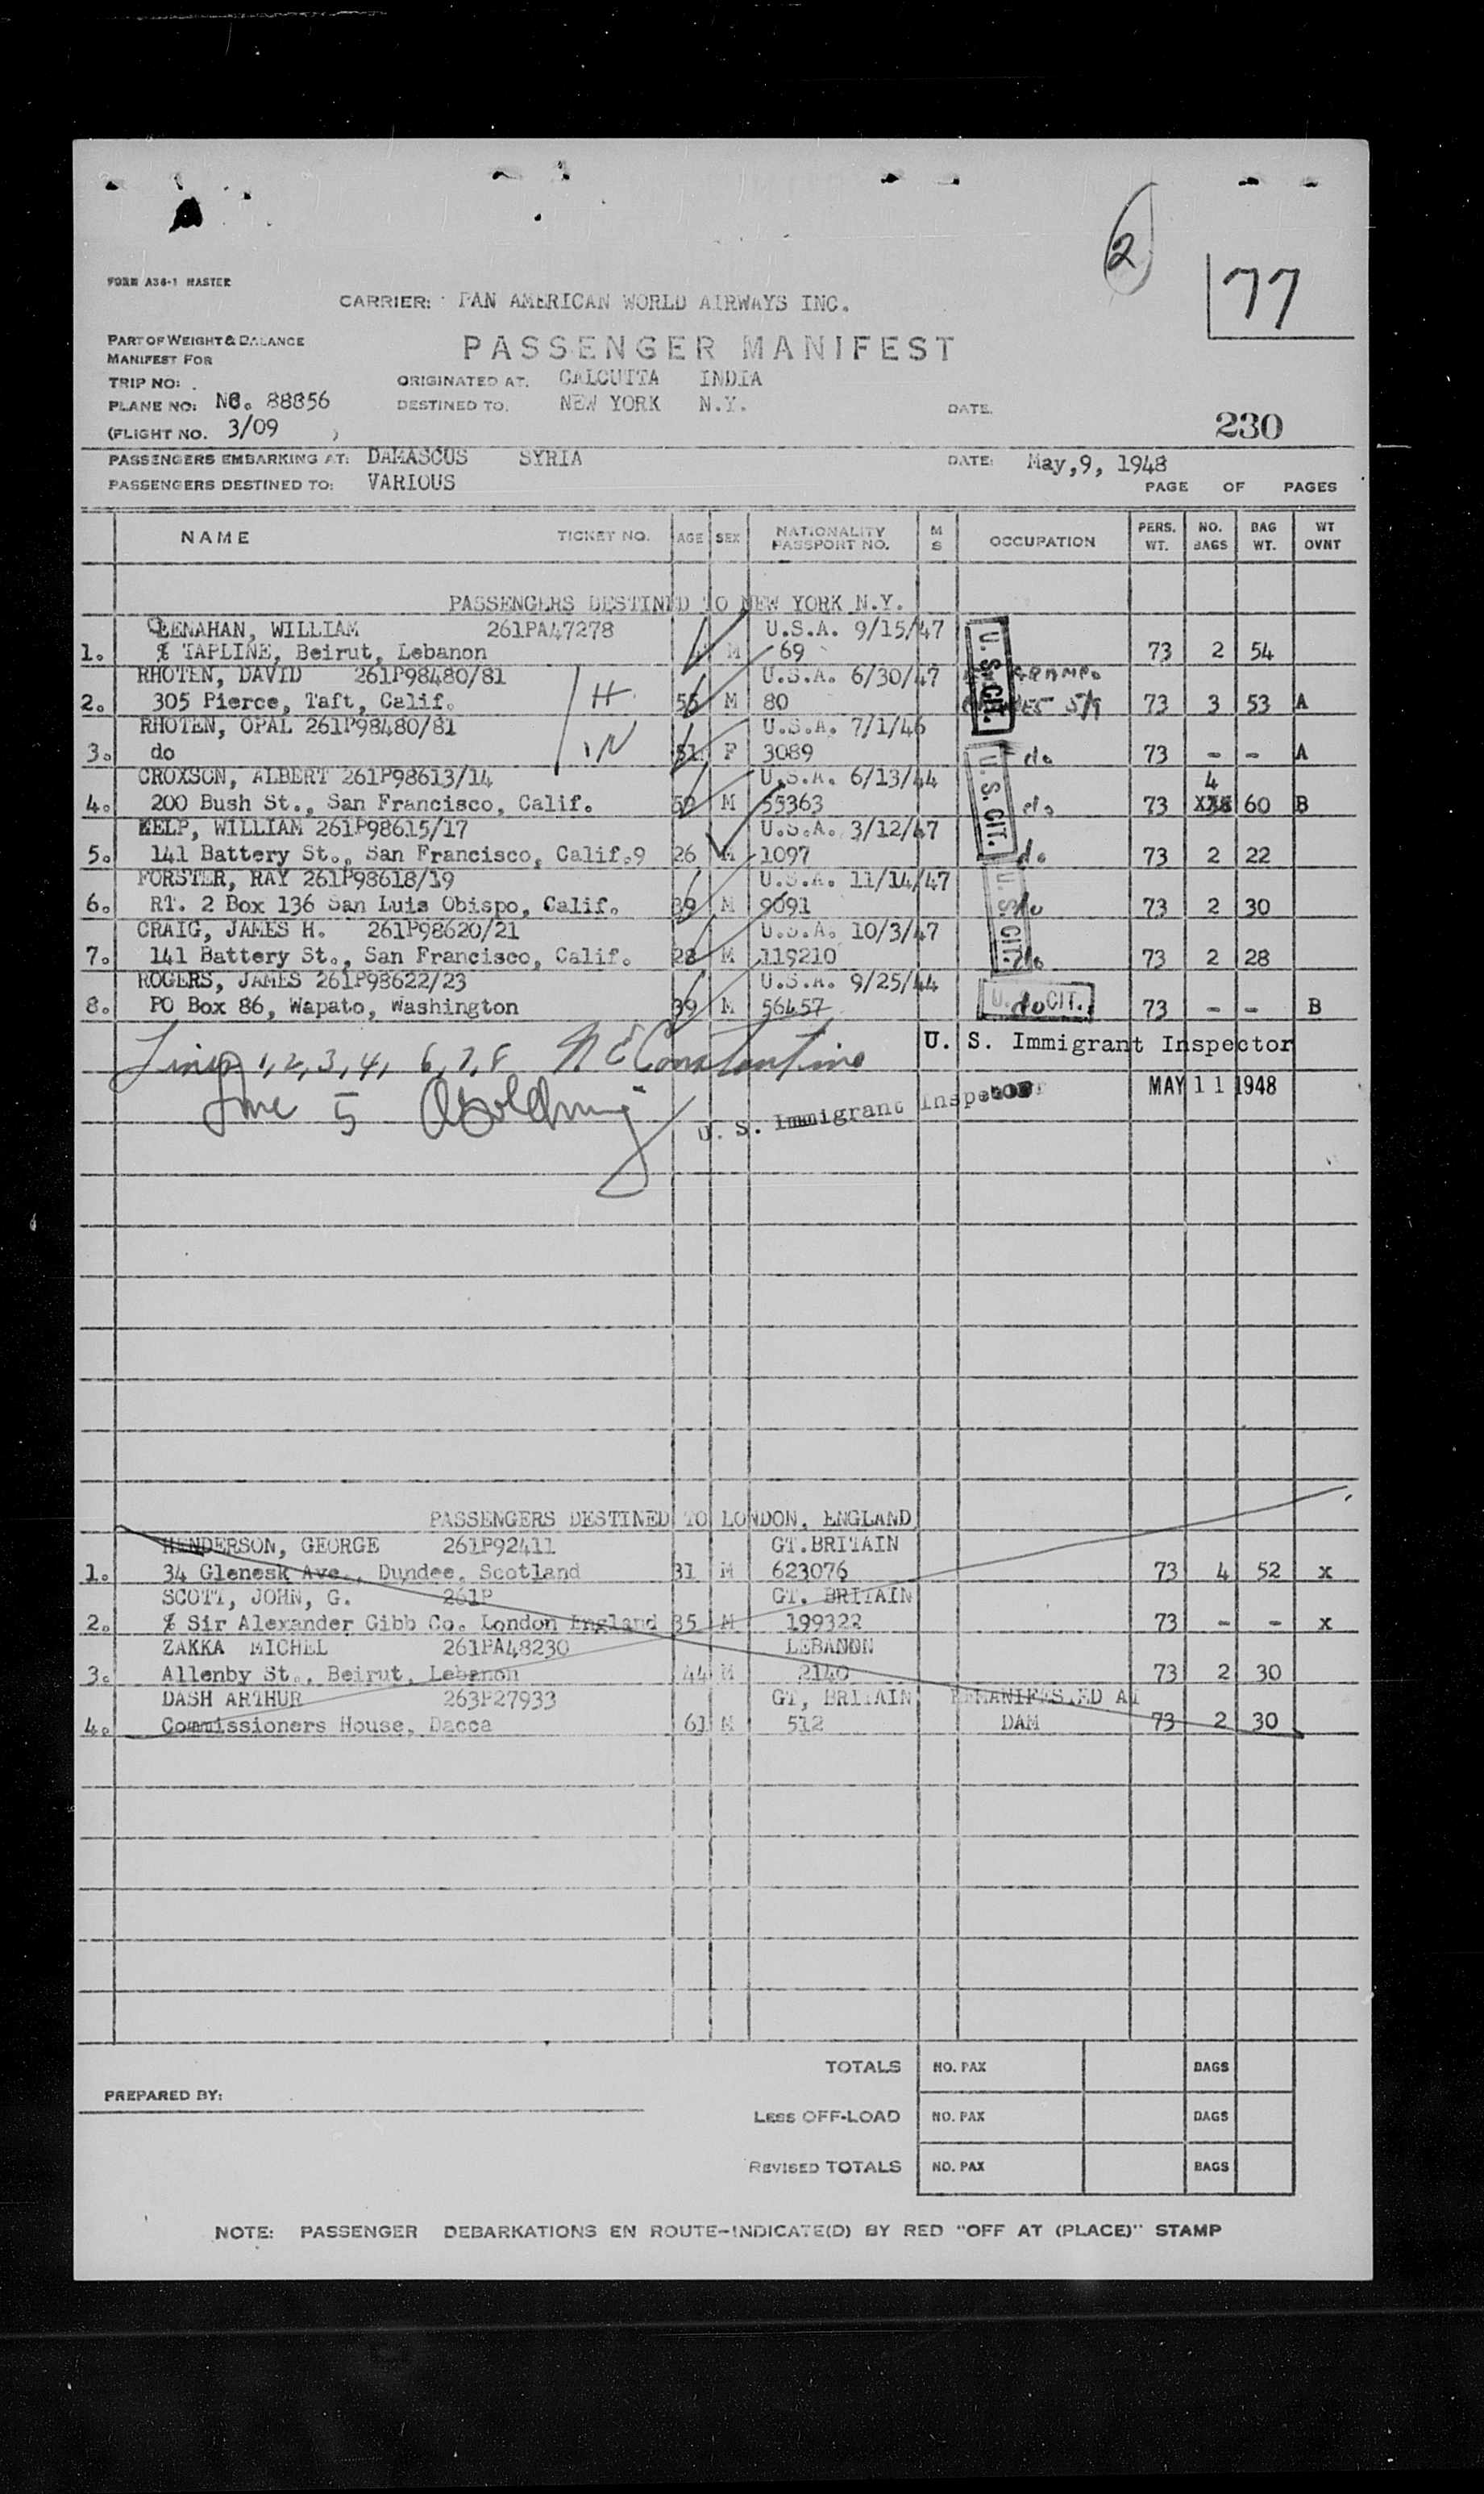 2
77
FORM A36-1 MASTER
CARRIER: PAN AMERICAN WORLD AIRWAYS INC.
PART OF WEIGHT & BALANCE
MANIFEST FOR
PASSENGER MANIFEST
TRIP NO:
ORIGINATED AT. CALCUTTA INDIA
PLANE NO: NC. 88856
DESTINED TO. NEW YORK N.Y.
DATE.
230
(FLIGHT NO. 3/09 )
PASSENGERS EMBARKING AT: DAMASCUS SYRIA DATE: May,9, 1948
PASSENGERS DESTINED TO: VARIOUS PAGE OF PAGES
NAME TICKET NO. AGE SEX NATIONALITY PASSPORT NO. M S OCCUPATION PERS. WT. NO. BAGS BAG WT. WT OVNT
PASSENGERS DESTINED TO NEW YORK N.Y.
LENAHAN, WILLIAM 261PA47278 U.S.A. 9/15/47
1. % TAPLINE, Beirut, Lebanon M 69 U.S. CIT. 73 2 54
RHOTEN, DAVID 261P98480/81 U.S.A. 6/30/47
2. 305 Pierce, Taft, Calif. H 55 M 80 5/9 73 3 53 A
RHOTEN, OPAL 261P98480/81 U.S.A. 7/1/46
3. do IN 51 F 3089 do 73 - - A
CROXSON, ALBERT 261P98613/14 U.S.A. 6/13/44 4
4. 200 Bush St., San Francisco, Calif. M 55363 U.S. CIT. do 73 60 B
KELP, WILLIAM 261P98615/17 U.S.A. 3/12/47
5. 141 Battery St., San Francisco, Calif.9 26 M 1097 do 73 2 22
FORSTER, RAY 261P98618/19 U.S.A. 11/14/47
6. RT. 2 Box 136 San Luis Obispo, Calif. 39 M 9091 U.S. CIT. do 73 2 30
CRAIG, JAMES H. 261P98620/21 U.S.A. 10/3/47
7. 141 Battery St., San Francisco, Calif. 28 M 119210 do 73 2 28
ROGERS, JAMES 261P98622/23 U.S.A. 9/25/44
8. PO Box 86, Wapato, Washington 39 M 56457 U.S. CIT. do 73 - - B
Lines 1, 2, 3, 4, 6, 7, 8 N E Constantine U. S. Immigrant Inspector
MAY 11 1948
Line 5 U. S. Immigrant Inspector
PASSENGERS DESTINED TO LONDON, ENGLAND
HENDERSON, GEORGE 261P92411 GT.BRITAIN
1. 34 Glenesk Ave., Dundee, Scotland 31 M 623076 73 4 52 x
SCOTT, JOHN, G. 261P GT. BRITAIN
2. % Sir Alexander Gibb Co. London England 35 M 199322 73 - - x
ZAKKA MICHEL 261PA48230 LEBANON
3. Allenby St., Beirut, Lebanon 44 M 2140 73 2 30
DASH ARTHUR 263P27933 GT, BRITAIN REMANIFESTED AT
4. Commissioners House, Dacca 61 M 512 DAM 73 2 30
TOTALS NO. PAX BAGS
PREPARED BY:
LESS OFF-LOAD NO. PAX BAGS
REVISED TOTALS NO. PAX BAGS
NOTE: PASSENGER DEBARKATIONS EN ROUTE-INDICATE(D) BY RED "OFF AT (PLACE)" STAMP